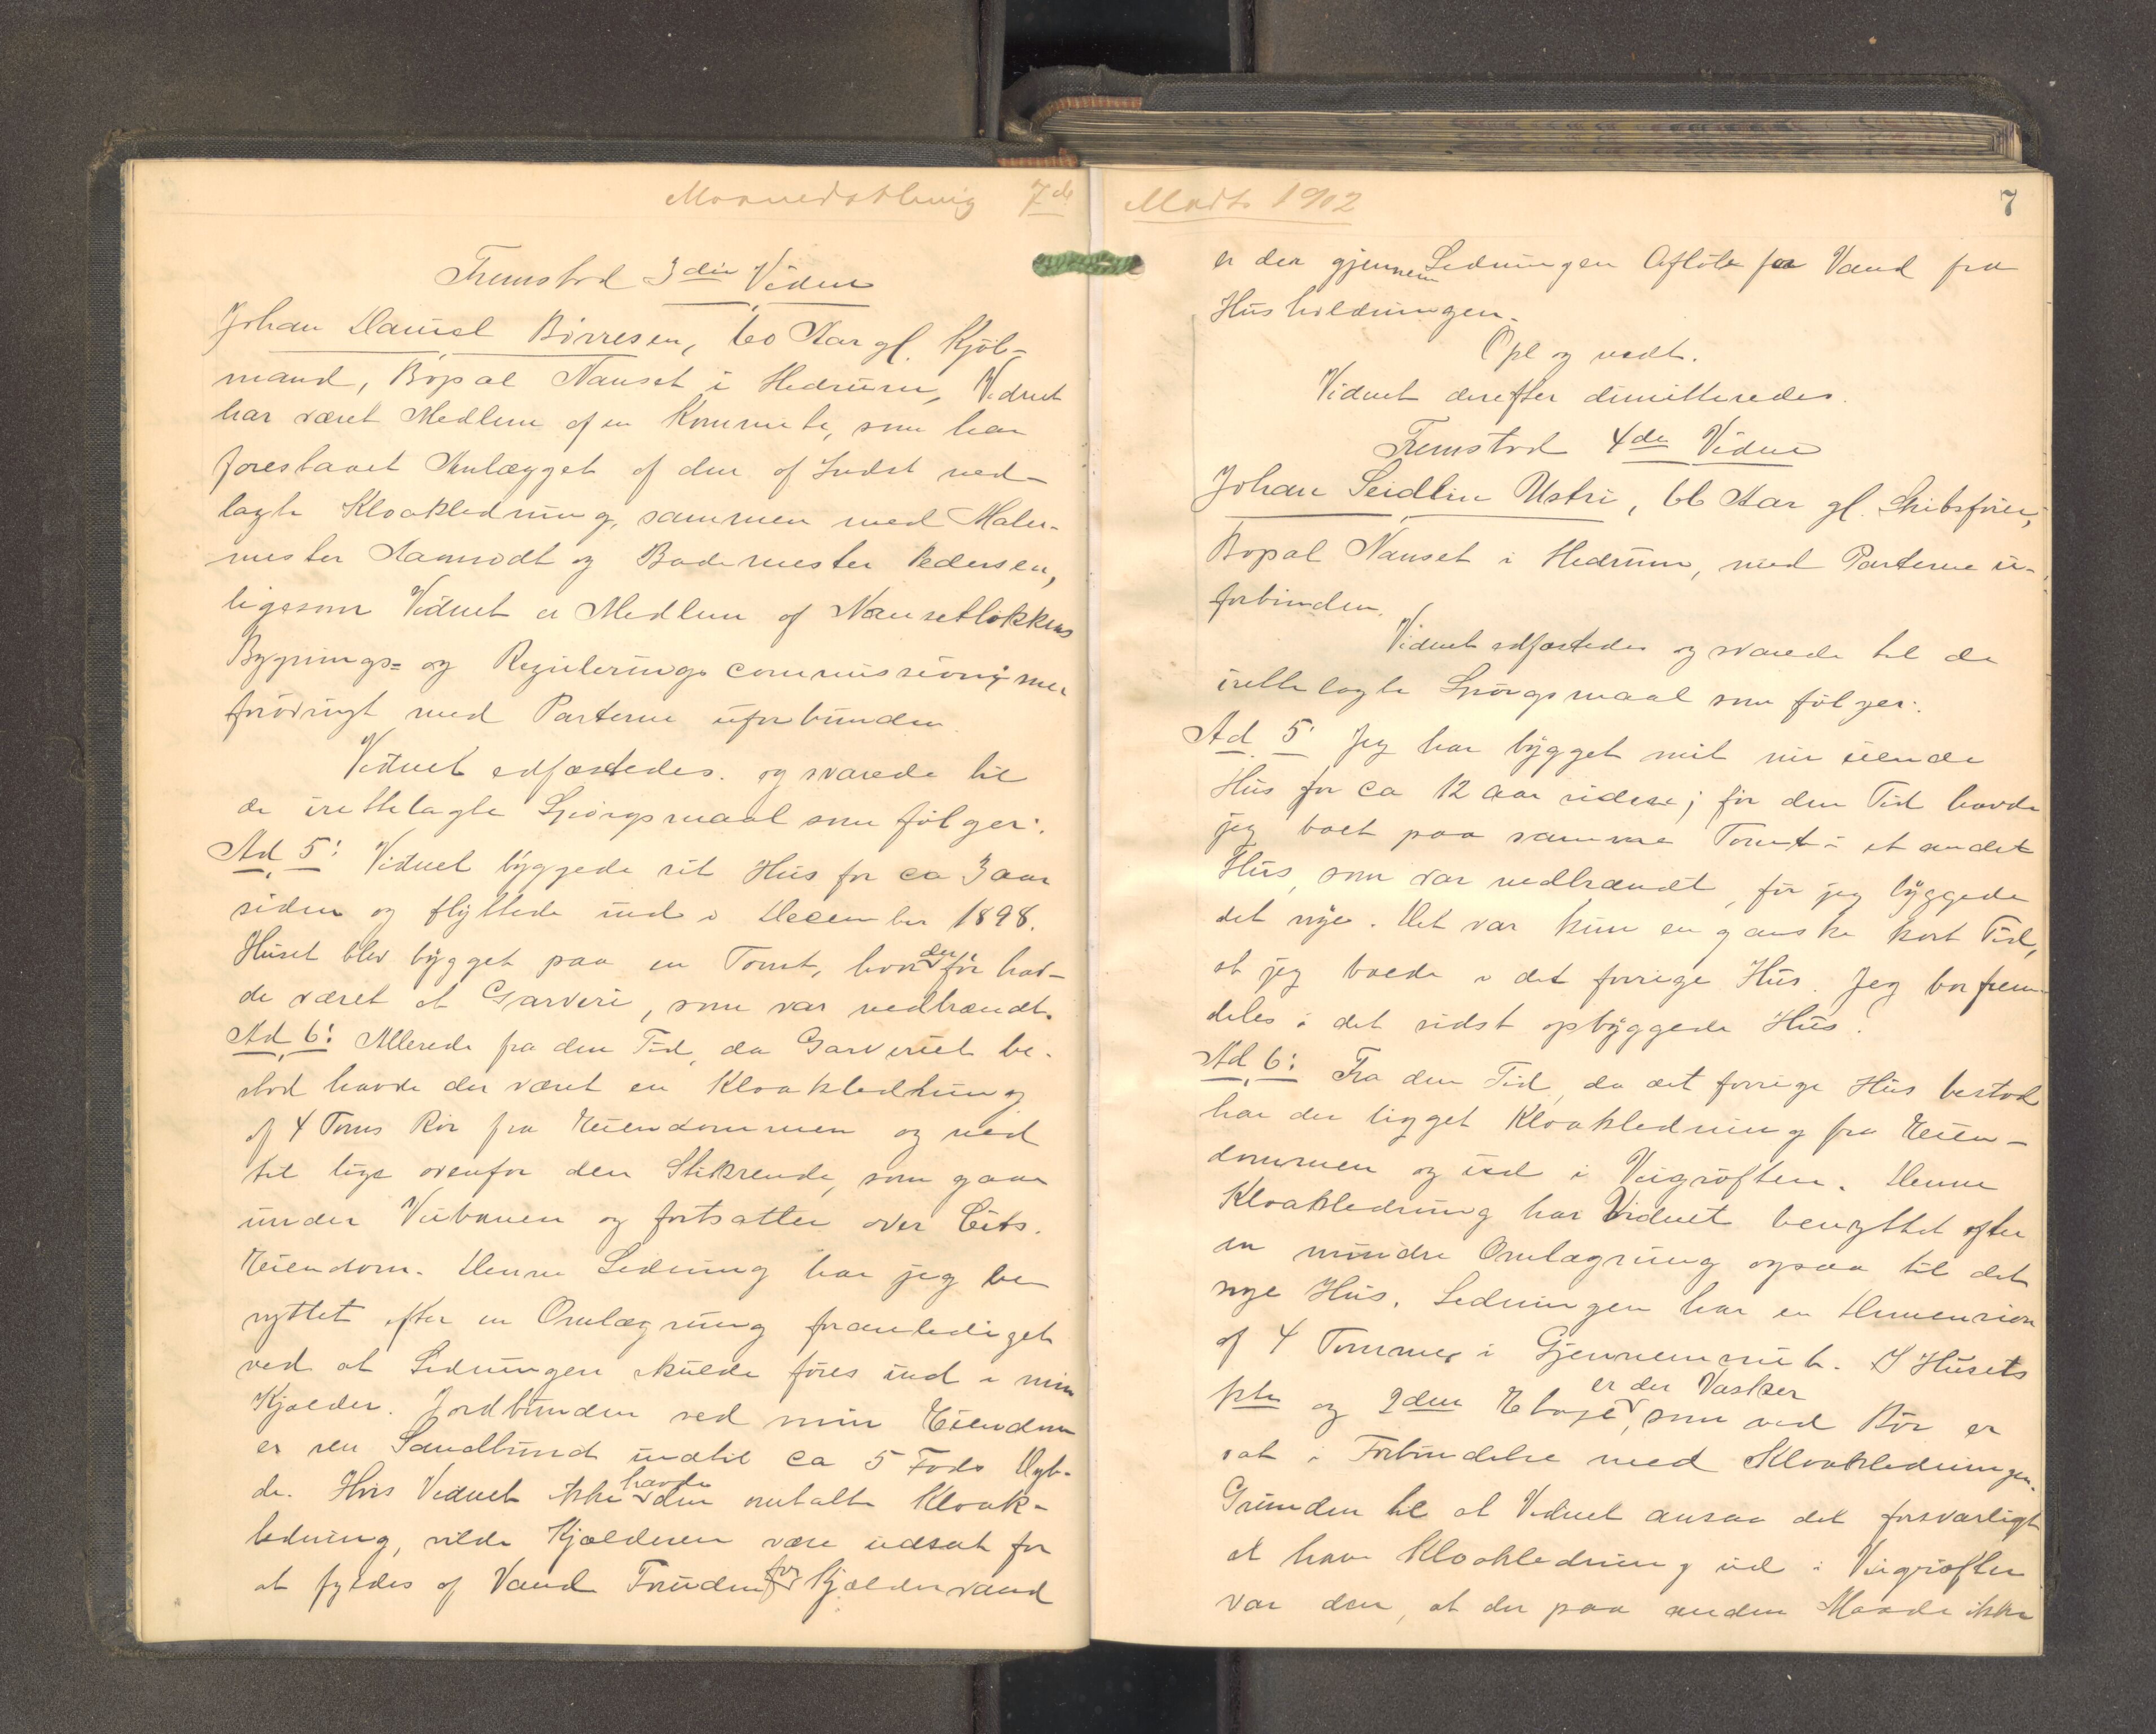 Maanedsthing 7de
Fremstod 3die Vidne
Johan Daniel Börresen, 60 Aar gl. Kjöb-
mand, Bopæl Nanset i Hedrum, Vidnet
har været Medlem af en Komite, som har
forestaaet Anlægget af den af Indst ned-
lagte Kloakledning, sammen med Maler-
mester Aamodt og Bademester Pedersen,
ligesom Vidnet er Medlem af Nansetlökkens
Bygnings= og Reguleringscommission; men
forövrigt med Parterne uforbunden.
Vidnet edfæstedes og svarede til
de irettelagte Spörgsmaal som fölger:
Ad 5: Vidnet byggede sit Hus for ca 3 aar
siden og flyttede ind i December 1898.
Huset blev bygget paa en Tomt, hvor der för hav-
de været et Garveri, som var nedbrændt.
Ad 6: Allerede fra den Tid, da Garveriet be-
stod havde der været en Kloakledning
af 4 Toms Rör fra Eiendommen og ned
til lige ovenfor den Stikrende, som gaar
under Veibanen og fortsætter over Cits.
Eiendom. Denne Ledning har jeg be
nyttet efter en Omlægning foranlediget
ved at Ledningen skulde föres ind i min
Kjælder. Jordbunden ved min Eiendom
er ren Sandbund indtil ca 5 Fods Dyb-
de. Hvis Vidnet ikke havde den omtalte Kloak-
ledning, vilde Kjælderen være udsat for
at fyldes af Vand Foruden for Kjældervand
Madts 1902
7
er der gjennem Ledningen Aflöb for Vand fra
Husholdningen.
Opl og vedt.
Vidnet derefter dimitteredes.
Fremstod 4de Vidne
Johan Seidlin Ustri, 66 Aar gl. Skibsförer,
Bopæl Nanset i Hedrum, med Parterne u-
forbunden.
Vidnet edfæstedes og svarede til de
irettelagte Spörgsmaal som fölger:
Ad 5: Jeg har bygget mit nu eiende
Hus for ca 12 aar siden; för den Tid havde
jeg boet paa samme Tomt i et andet
Hus, som var nedbrændt, för jeg byggede
det nye. Det var kun en ganske kort Tid,
at jeg boede i det forrige Hus. Jeg bor frem-
deles i det sidst opbyggede Hus.
Ad 6: Fra den Tid, da det forrige Hus bestod
har der ligget Kloakledning fra Eien-
dommen og ud i Veigröften. Denne
Kloakledning har Vidnet benyttet efter
en mindre Omlægning ogsaa til det
nye Hus. Ledningen har en Dimension
af 4 Tommer i Gjennemsnit. I Husets
1ste og 2den Etage er der Vasker, som ved Rör er
sat i Forbindelse med Kloakledningen.
Grunden til at Vidnet ansaa det forsvarligt
at have Kloakledning ud i Veigröften
var den, at der paa anden Maade ikke